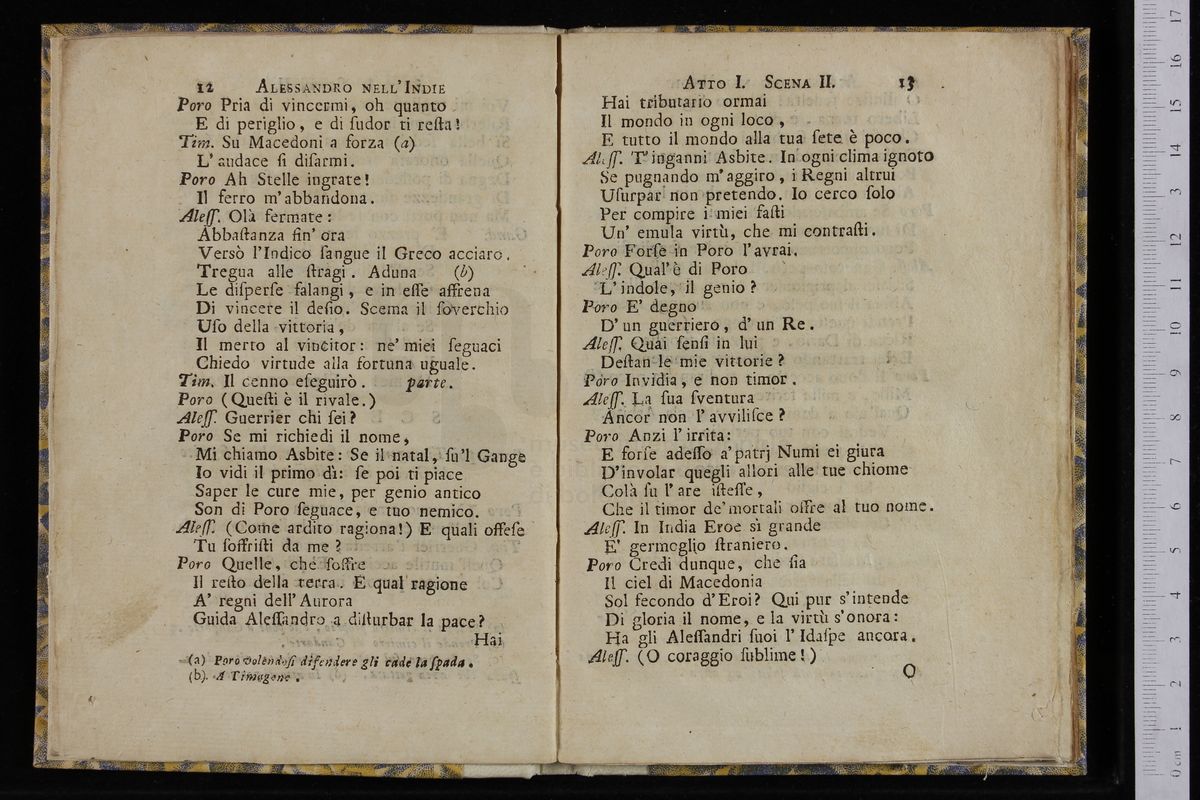 12 ALESSANDRO NELL'INDIE
Poro Pria di vincermi, oh quanto
E di periglio, e di ſudor ti reſta!
Tim. Su Macedoni a forza (a)
L'audace ſi diſarmi.
Poro Ah Stelle ingrate!
Il ferro m'abbandona.
Aleſſ. Olà fermate:
Abbaſtanza ſin' ora
Versò l'Indico ſangue il Greco acciaro.
Tregua alle ſtragi. Aduna (b)
Le diſperſe falangi, e in eſſe affrena
Di vincere il deſio. Scema il ſoverchio
Uſo della vittoria,
Il merto al vincitor: ne' miei ſeguaci
Chiedo virtude alla fortuna uguale.
Tim. Il cenno eſeguirò. parte.
Poro (Queſti è il rivale.)
Aleſſ. Guerrier chi ſei?
Poro Se mi richiedi il nome,
Mi chiamo Asbite: Se il natal, ſu'l Gange
Io vidi il primo dì: ſe poi ti piace
Saper le cure mie, per genio antico
Son di Poro ſeguace, e tuo nemico.
Aleſſ. (Come ardito ragiona!) E quali offeſe
Tu ſoffriſti da me?
Poro Quelle, che ſoffre
Il reſto della terra. E qual ragione
A' regni dell'Aurora
Guida Aleſſandro a diſturbar la pace?
Hai
(a) Poro volendoſi difendere gli cade la ſpada.
(b). A Timagene.
ATTO I. SCENA II. 13
Hai tributario ormai
Il mondo in ogni loco,
E tutto il mondo alla tua ſete è poco.
Aleſſ. T'inganni Asbite. In ogni clima ignoto
Se pugnando m'aggiro, i Regni altrui
Uſurpar non pretendo. Io cerco ſolo
Per compire i miei faſti
Un' emula virtù, che mi contraſti.
Poro Forſe in Poro l'avrai.
Aleſſ. Qual'è di Poro
L'indole, il genio?
Poro E' degno
D'un guerriero, d'un Re.
Aleſſ. Quai ſenſi in lui
Deſtan le mie vittorie?
Poro Invidia, e non timor.
Aleſſ. La ſua ſventura
Ancor non l'avviliſce?
Poro Anzi l'irrita:
E forſe adeſſo a'patrj Numi ei giura
D'involar quegli allori alle tue chiome
Colà ſu l'are iſteſſe,
Che il timor de'mortali offre al tuo nome.
Aleſſ. In India Eroe sì grande
E' germoglio ſtraniero.
Poro Credi dunque, che ſia
Il ciel di Macedonia
Sol fecondo d'Eroi? Qui pur s'intende
Di gloria il nome, e la virtù s'onora:
Ha gli Aleſſandri ſuoi l'Idaſpe ancora.
Aleſſ. (O coraggio ſublime!)
O
0 cm 1 2 3 4 5 6 7 8 9 10 11 12 13 14 15 16 17